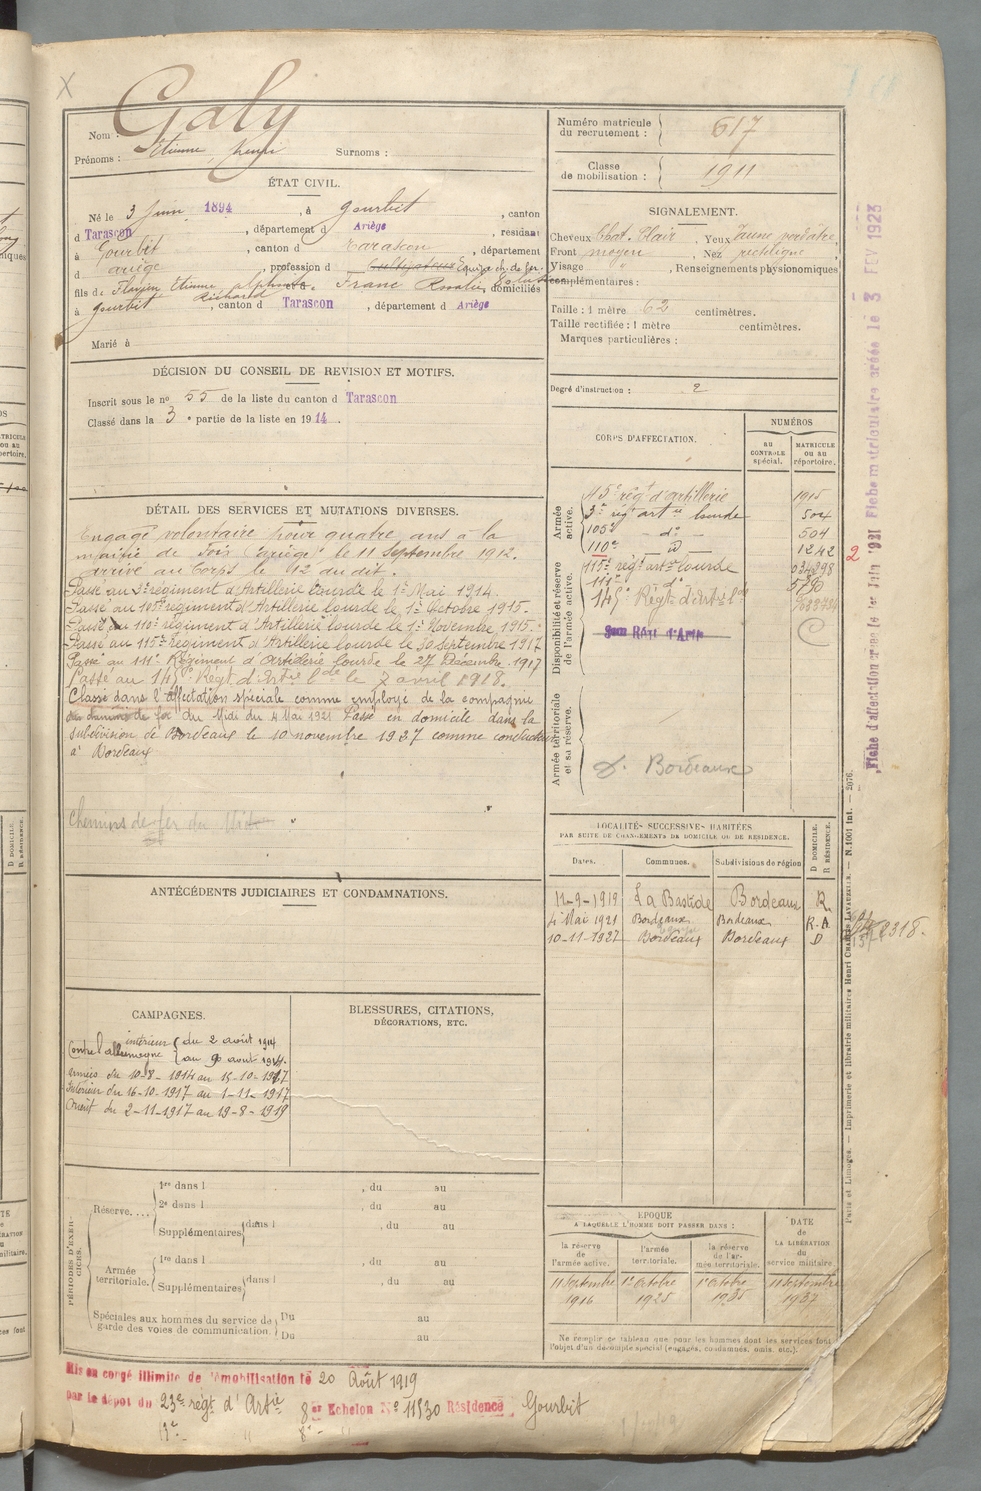 Nom : Galy
Prénoms : Etienne, Henri Surnoms :
Numéro matricule du recrutement : 617
Classe de mobilisation : 1911
ÉTAT CIVIL.
Né le 3 Juin 1894, à Gourbit, canton
d Tarascon, département d Ariège, résidant
à Gourbit, canton d Tarascon, département
d Ariège, profession d Cultivateur Equipe ch. de fer
fils de Florien Etienne Alphonse et d Franc Rosalie, domiciliés
à Gourbit, canton d Tarascon, département d Ariège
Marié à
SIGNALEMENT.
Cheveux Chat. Clair. Yeux Jaune verdatre,
Front moyen. Nez rectiligne
Visage " , Renseignements physionomiques
complémentaires :
Taille : 1 mètre 62 centimètres.
Taille rectifiée : 1 mètre centimètres.
Marques particulières :
Degré d'instruction : 2
DÉCISION DU CONSEIL DE REVISION ET MOTIFS.
Inscrit sous le no 55 de la liste du canton d Tarascon
Classé dans la 3e partie de la liste en 1914.
DÉTAIL DES SERVICES ET MUTATIONS DIVERSES.
Engagé volontaire pour quatre ans a la
mairie de Foix (Ariège) le 11 Septembre 1912.
arrivé au Corps le 12 du dit.
Passé au 3e régiment d'Artillerie Lourde le 1er Mai 1914.
Passé au 105e régiment d'Artillerie lourde le 1er Octobre 1915.
Passé au 110e régiment d'Artillerie lourde le 1er Novembre 1915.
Passé au 115e régiment d'Artillerie lourde le 30 septembre 1917
Passé au 111e Régiment d'Artillerie lourde le 27 Décembre 1917
Passé au 145e Régt d'Artie lde le 7 avril 1918.
Classé dans l'affectation spéciale comme employé de la compagnie
des chemins de fer du Midi du 4 Mai 1921 Passé en domicile dans la
subdivision de Bordeaux le 10 novembre 1927 comme conducteur
a Bordeaux
Chemins de fer du Midi
CORPS D'AFFECTATION.
NUMÉROS
AU CONTRÔLE spécial.
MATRICULE OU AU répertoire.
Armée active.
régt d'artillerie 1915
3e régt artie lourde 504
105e do 504
110e do 1242 2
Disponibilité et réserve de l'armée active.
115e régt artie lourde 034398
111e do
145e Régt d'Artie lde
Armée territoriale et sa réserve.
D. Bordeaux
LOCALITÉS SUCCESSIVES HABITÉES
PAR SUITE DE CHANGEMENTS DE DOMICILE OU DE RÉSIDENCE.
Dates. Communes. Subdivisions de région D DOMICILE. R RÉSIDENCE.
11-9-1919 La Bastide Bordeaux R.
4 Mai 1921 Bordeaux Bordeaux R.A
10-11-1927 Bordeaux Bordeaux D
2318.
ANTÉCÉDENTS JUDICIAIRES ET CONDAMNATIONS.
CAMPAGNES.
Contre l'allemagne intérieur du 2 août 1914
au 9 août 1914.
armées du 10-8-1914 au 15-10-1917
Intérieur du 16-10-1917 au 1-11-1917
Orient du 2-11-1917 au 19-8-1919
BLESSURES, CITATIONS,
DÉCORATIONS, ETC.
PÉRIODES D'EXERCICES.
Réserve....
1re dans l , du au
2e dans l , du au
Supplémentaires dans l , du au
Armée territoriale.
1re dans l , du au
Supplémentaires dans l , du au
Spéciales aux hommes du service de garde des voies de communication.
Du au
Du au
EPOQUE
A LAQUELLE L'HOMME DOIT PASSER DANS :
la réserve de l'armée active.
l'armée territoriale.
la réserve de l'armée territoriale.
DATE de LA LIBÉRATION du service militaire.
11 Septembre 1916
1er Octobre 1925
1er Octobre 1935
11 Septembre 1937
Ne remplir ce tableau que pour les hommes dont les services font
l'objet d'un décompte spécial (engagés, condamnés, omis, etc.).
Mis en congé illimité de démobilisation le 20 Août 1919
par le dépot du 23e régt d'Artie 8er Echelon No 11530 Résidence Gourbit
Paris et Limoges. — Imprimerie et librairie militaires Henri CHARLES-LAVAUZELLE. — N. 1001 int. — 2076.